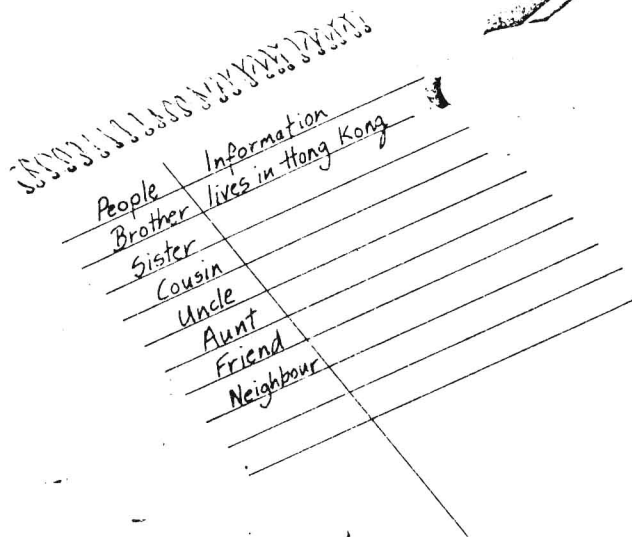 People Information
Brother lives in Hong Kong
Sister
Cousin
Uncle
Aunt
Friend
Neighbour